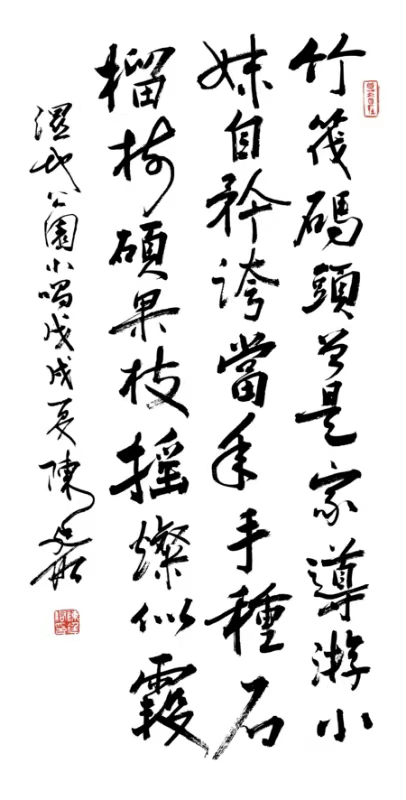 竹筏碼頭曾是家導游小
妹自矜誇當年手種石
榴樹碩果枝搖燦似霞
濕地公園小唱戊戌夏陳